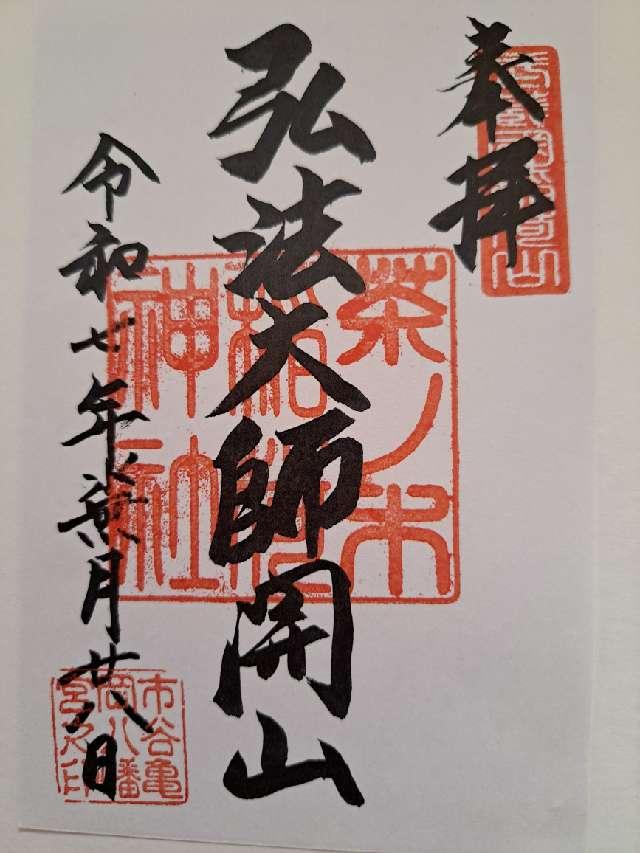 奉拝
弘法大師開山
茶ノ木
稲荷
神社
令和七年葉月廿八日
市谷亀
岡八幡
宮之印